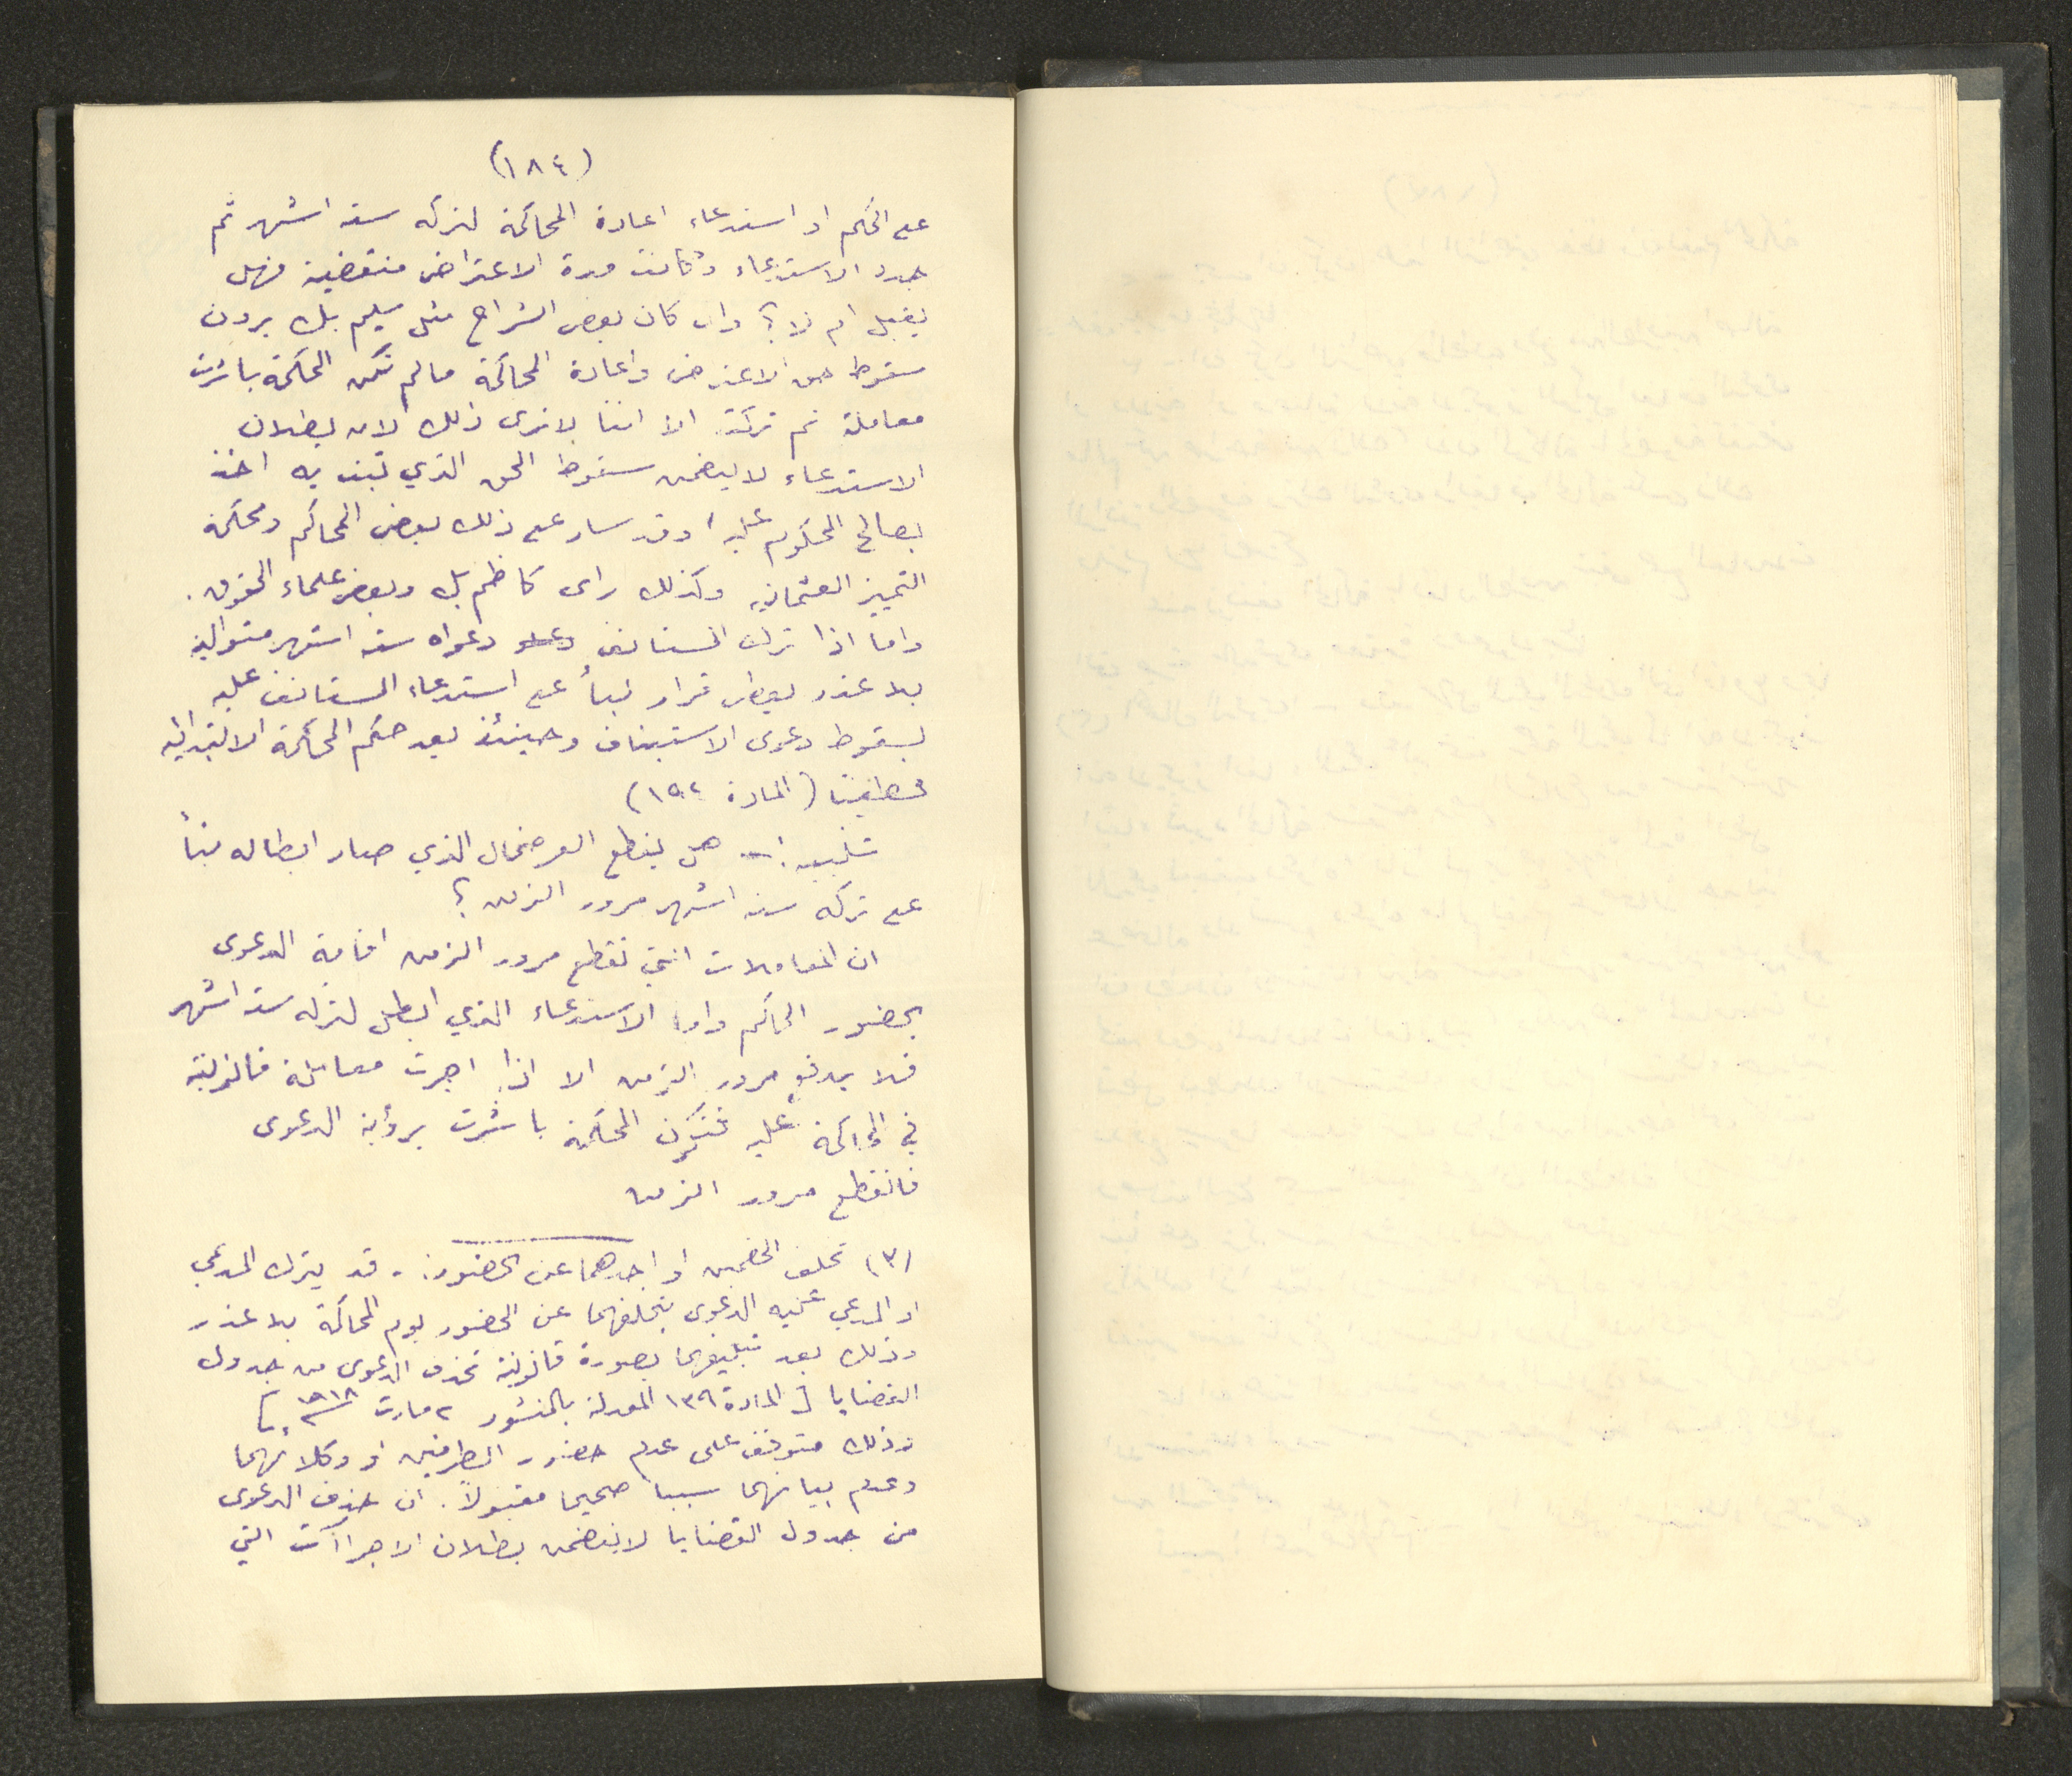 (١٨٤)
على الحكم او استدعاء اعادة المحاكمة لتركه ستة اشهر ثم
جدد الاستدعاء وكانت مدة الاعتراض منقضية فهل
يقبل ام لا؟ وان كان بعض الشراح مثل سليم بك يرون
سقوط حق الاعتراض واعادة المحاكمة مالم تكن المحكمة باشرت
معاملة ثم تركت الا اننا لا نرى ذلك لان بطلان
الاستدعاء لا يتضمن سقوط الحق الذي تثبت به اخذ
بصالح المحكوم عليه، وقد سار على ذلك بعض المحاكم ومحكمة
التمييز العثمانية وكذلك راى كاظم بك وبعض علماء الحقوق.
واما اذا ترك المستانف دعواه ستة اشهر متوالية
بلا عذر يعطى قرار بناً على استدعاء المستانف عليه
بسقوط دعوى الاستيناف وحينئذ يعد حكم المحكمة الابتدائية
قطعياً (المادة ١٥٢)
تنبيه:- هل يقطع العرضحال الذي صار ابطاله بناً
على تركه ستة اشهر مرور الزمن؟
ان المعاملات التي تقطع مرور الزمن اقامة الدعوى
بحضور الحاكم واما الاستدعاء الذي ابطل لتركه ستة اشهر
فلا يدفع مرور الزمن الا اذا اجرت معاملة قانونية
في المحاكمة عليه فتكون المحكمة باشرت برؤية الدعوى
فانقطع مرور الزمن
(٣) تخلف الخصمين او احدهما عن الحضور:- قد يترك المدعي
او المدعي عليه الدعوى بتخلفهما عن الحضور يوم المحاكمة بلا عذر
وذلك بعد تبليغهما بصورة قانونية تحذف الدعوى من جدول
القضايا [المادة ١٣٩ المعدلة بالمنشور ٢ مارت ١٩١٨]
وذلك متوقف على عدم حضور الطرفين او وكلائهما
وعدم بيانهما سببا صحيحا مقبولاً. ان حذف الدعوى
من جدول القضايا لا يتضمن بطلان الاجراآت التي